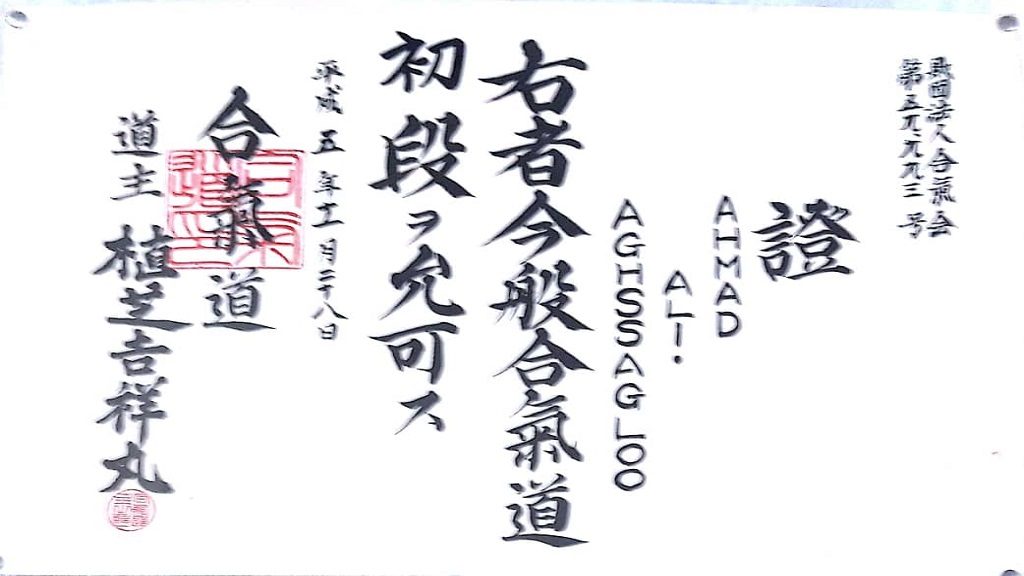 財団法人合氣会
第五九九九三号
證
AHMAD
ALI.
AGHSSAGLOO
右者今般合氣道
初段ヲ允可ス
平成五年十一月二十八日
合氣道
道主 植芝吉祥丸